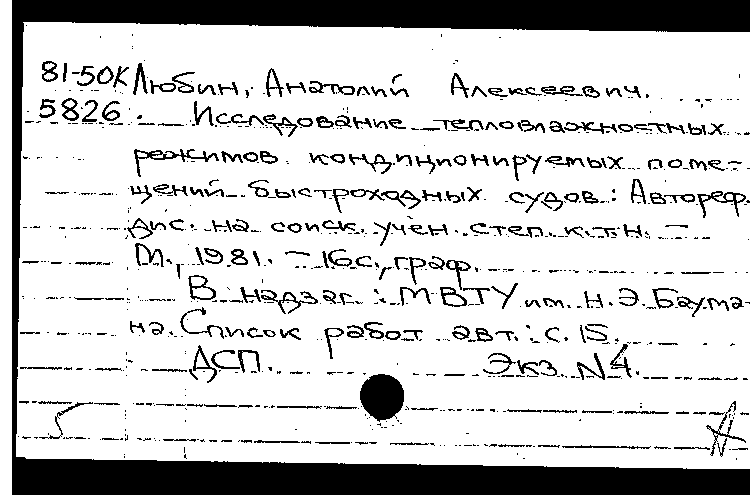 81-50К Любин, Анатолий Алексеевич.
5826. Исследование тепловлажностных
режимов кондиционируемых поме-
щений быстроходных судов: Автореф.
дис. на соиск. учен. степ. к.т.н. –
М., 1981. – 16с., граф.
В надзаг.: МВТУ им. Н.Э.Баума-
на. Список работ авт.: с. 15.
ДСП. Экз. N4.